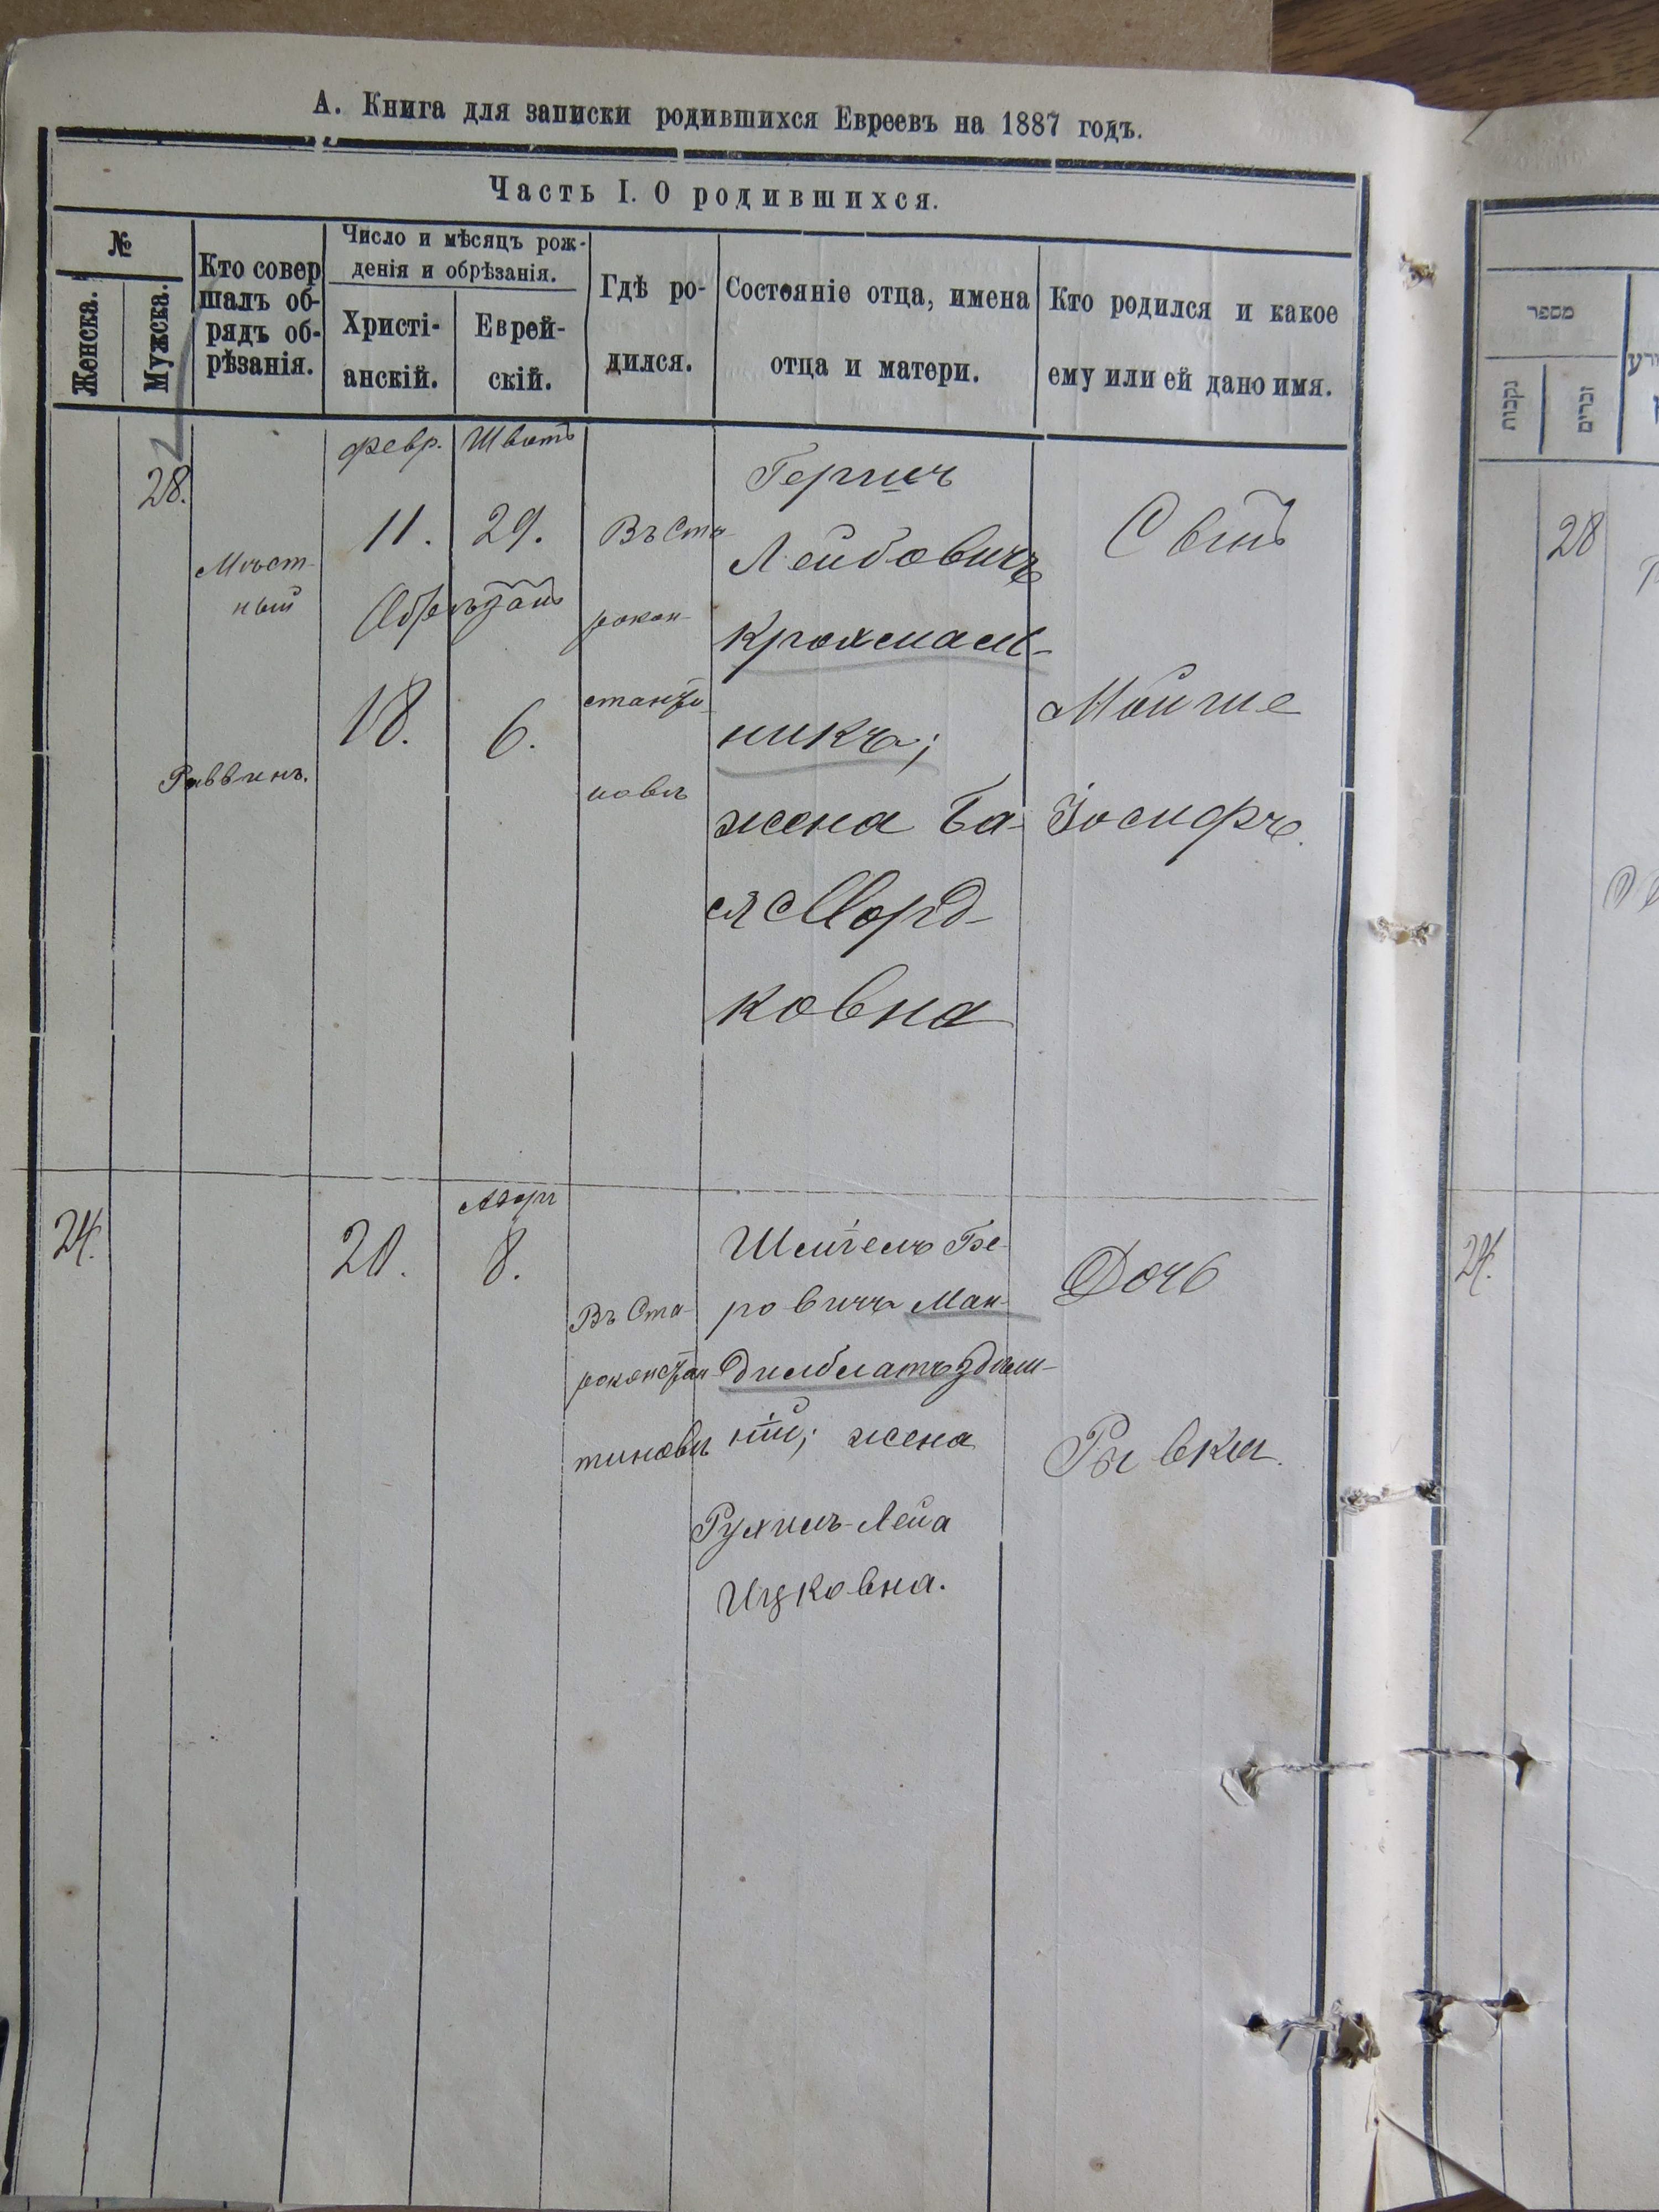 А. Книга для записки родившихся Евреевъ на 1887 годъ.
Часть I. О родившихся.
№
Женска.
Мужска.
Кто совер
шалъ об-
рядъ об-
рѣзанія.
Число и мѣсяцъ рож-
денія и обрѣзанія.
Христі-
анскій.
Еврей-
скій.
Гдѣ ро-
дился.
Состояніе отца, имена
отца и матери.
Кто родился и какое
ему или ей дано имя.
28.
Мѣст-
ный
Раввинъ.
Февр.
11.
Шватъ
29.
Обрѣзанъ
18.
6.
Въ Ста-
рокон-
станти-
новѣ
Гершъ
Лейбовичъ
Крохмаль-
никъ;
жена Ба-
ся Морд-
ковна
Сынъ
Мойше
Іосифъ.
24.
20.
Адаръ
8.
Въ Ста-
роконстан
тиновѣ
Бе-
ровичъ Ман-
дильблатъ здѣш-
ній; жена
Рухиль-Лейа
Ицковна.
Дочь
Рывка.
מספר
נקבות
זכרים
28
24.